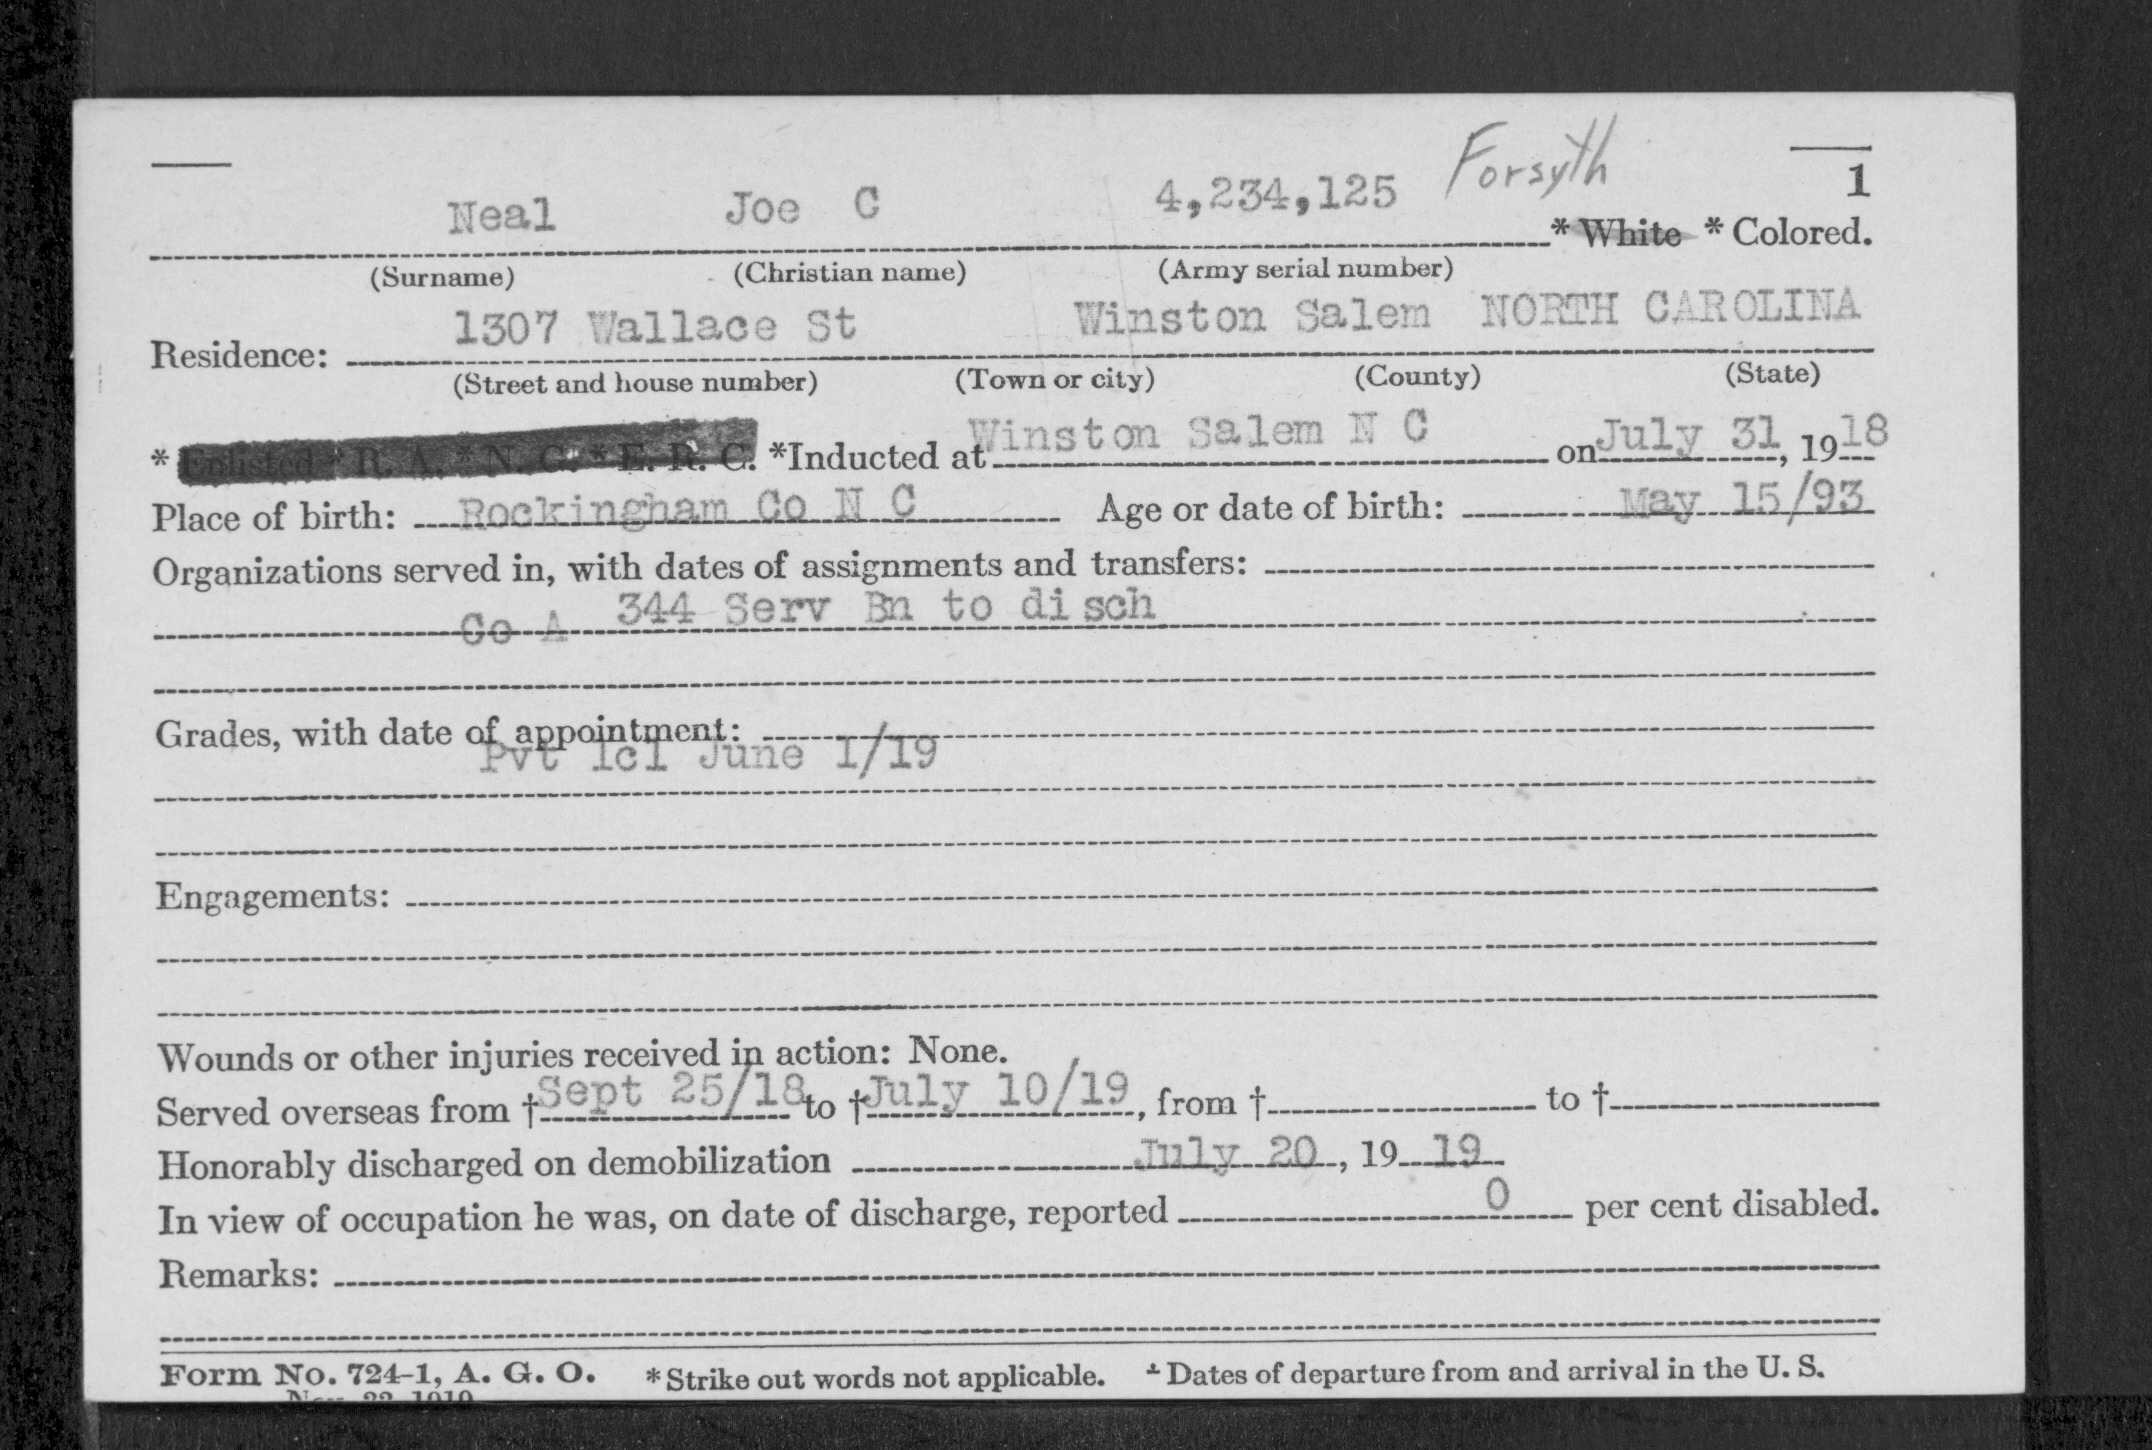 Forsyth
1
Neal Joe C 4,234,125 * White * Colored.
(Surname) (Christian name) (Army serial number)
Residence: 1307 Wallace St Winston Salem NORTH CAROLINA
(Street and house number) (Town or city) (County) (State)
* Enlisted * R. A. * N. G. * E. R. C. *Inducted at Winston Salem N C on July 31, 1918
Place of birth: Rockingham Co N C Age or date of birth: May 15/93
Organizations served in, with dates of assignments and transfers:
Co A 344 Serv Bn to disch
Grades, with date of appointment:
Pvt 1cl June 1/19
Engagements:
Wounds or other injuries received in action: None.
Served overseas from † Sept 25/18 to † July 10/19, from † to †
Honorably discharged on demobilization July 20, 19 19
In view of occupation he was, on date of discharge, reported 0 per cent disabled.
Remarks:
Form No. 724-1, A. G. O. * Strike out words not applicable. † Dates of departure from and arrival in the U. S.